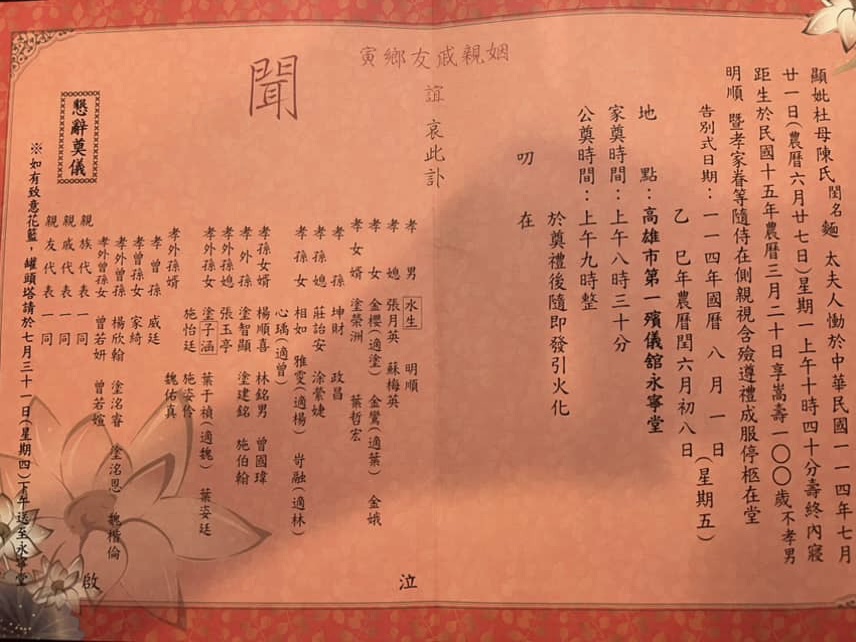 顯妣杜母陳氏閨名麵 太夫人慟於中華民國一一四年七月
廿一日(農曆六月廿七日)星期一上午十時四十分壽終內寢
距生於民國十五年農曆三月二十日享嵩壽一〇〇歲不孝男
明順 暨孝家眷等隨侍在側親視含殮遵禮成服停柩在堂
告別式日期:一一四年國曆 八月一日(星期五)
乙巳年農曆閏六月初八日
地 點:高雄市第一殯儀館永寧堂
家奠時間:上午八時三十分
公奠時間:上午九時整
於奠禮後隨即發引火化
叨 在
姻親戚友鄉寅
誼 哀此訃
聞
孝男 水生 明順
孝媳 張月英 蘇梅英
孝女 金櫻(適塗) 金鶯(適葉) 金娥
孝女婿 塗榮洲 葉哲宏
孝孫 坤財 政昌
孝孫媳 莊詒安 涂縈婕
孝孫女 相如 雅雯(適楊) 岢融(適林)
心瑀(適曾)
孝孫女婿 楊順喜 林銘男 曾國瑋
孝外孫 塗智顯 塗建銘 施伯翰
孝外孫媳 張玉亭
孝外孫女 塗子涵 葉于楨(適魏) 葉姿廷
施怡廷 施姿伶
孝外孫婿 魏佑真
孝曾孫 威廷
孝曾孫女 家綺
孝外曾孫 楊欣翰 塗洺睿 塗洺恩 魏楷倫
孝外曾孫女 曾若妍 曾若媗
親族代表一同
親戚代表一同
親友代表一同
泣
啟
懇辭奠儀
※如有致意花籃,罐頭塔請於七月三十一日(星期四)下午送至永寧堂